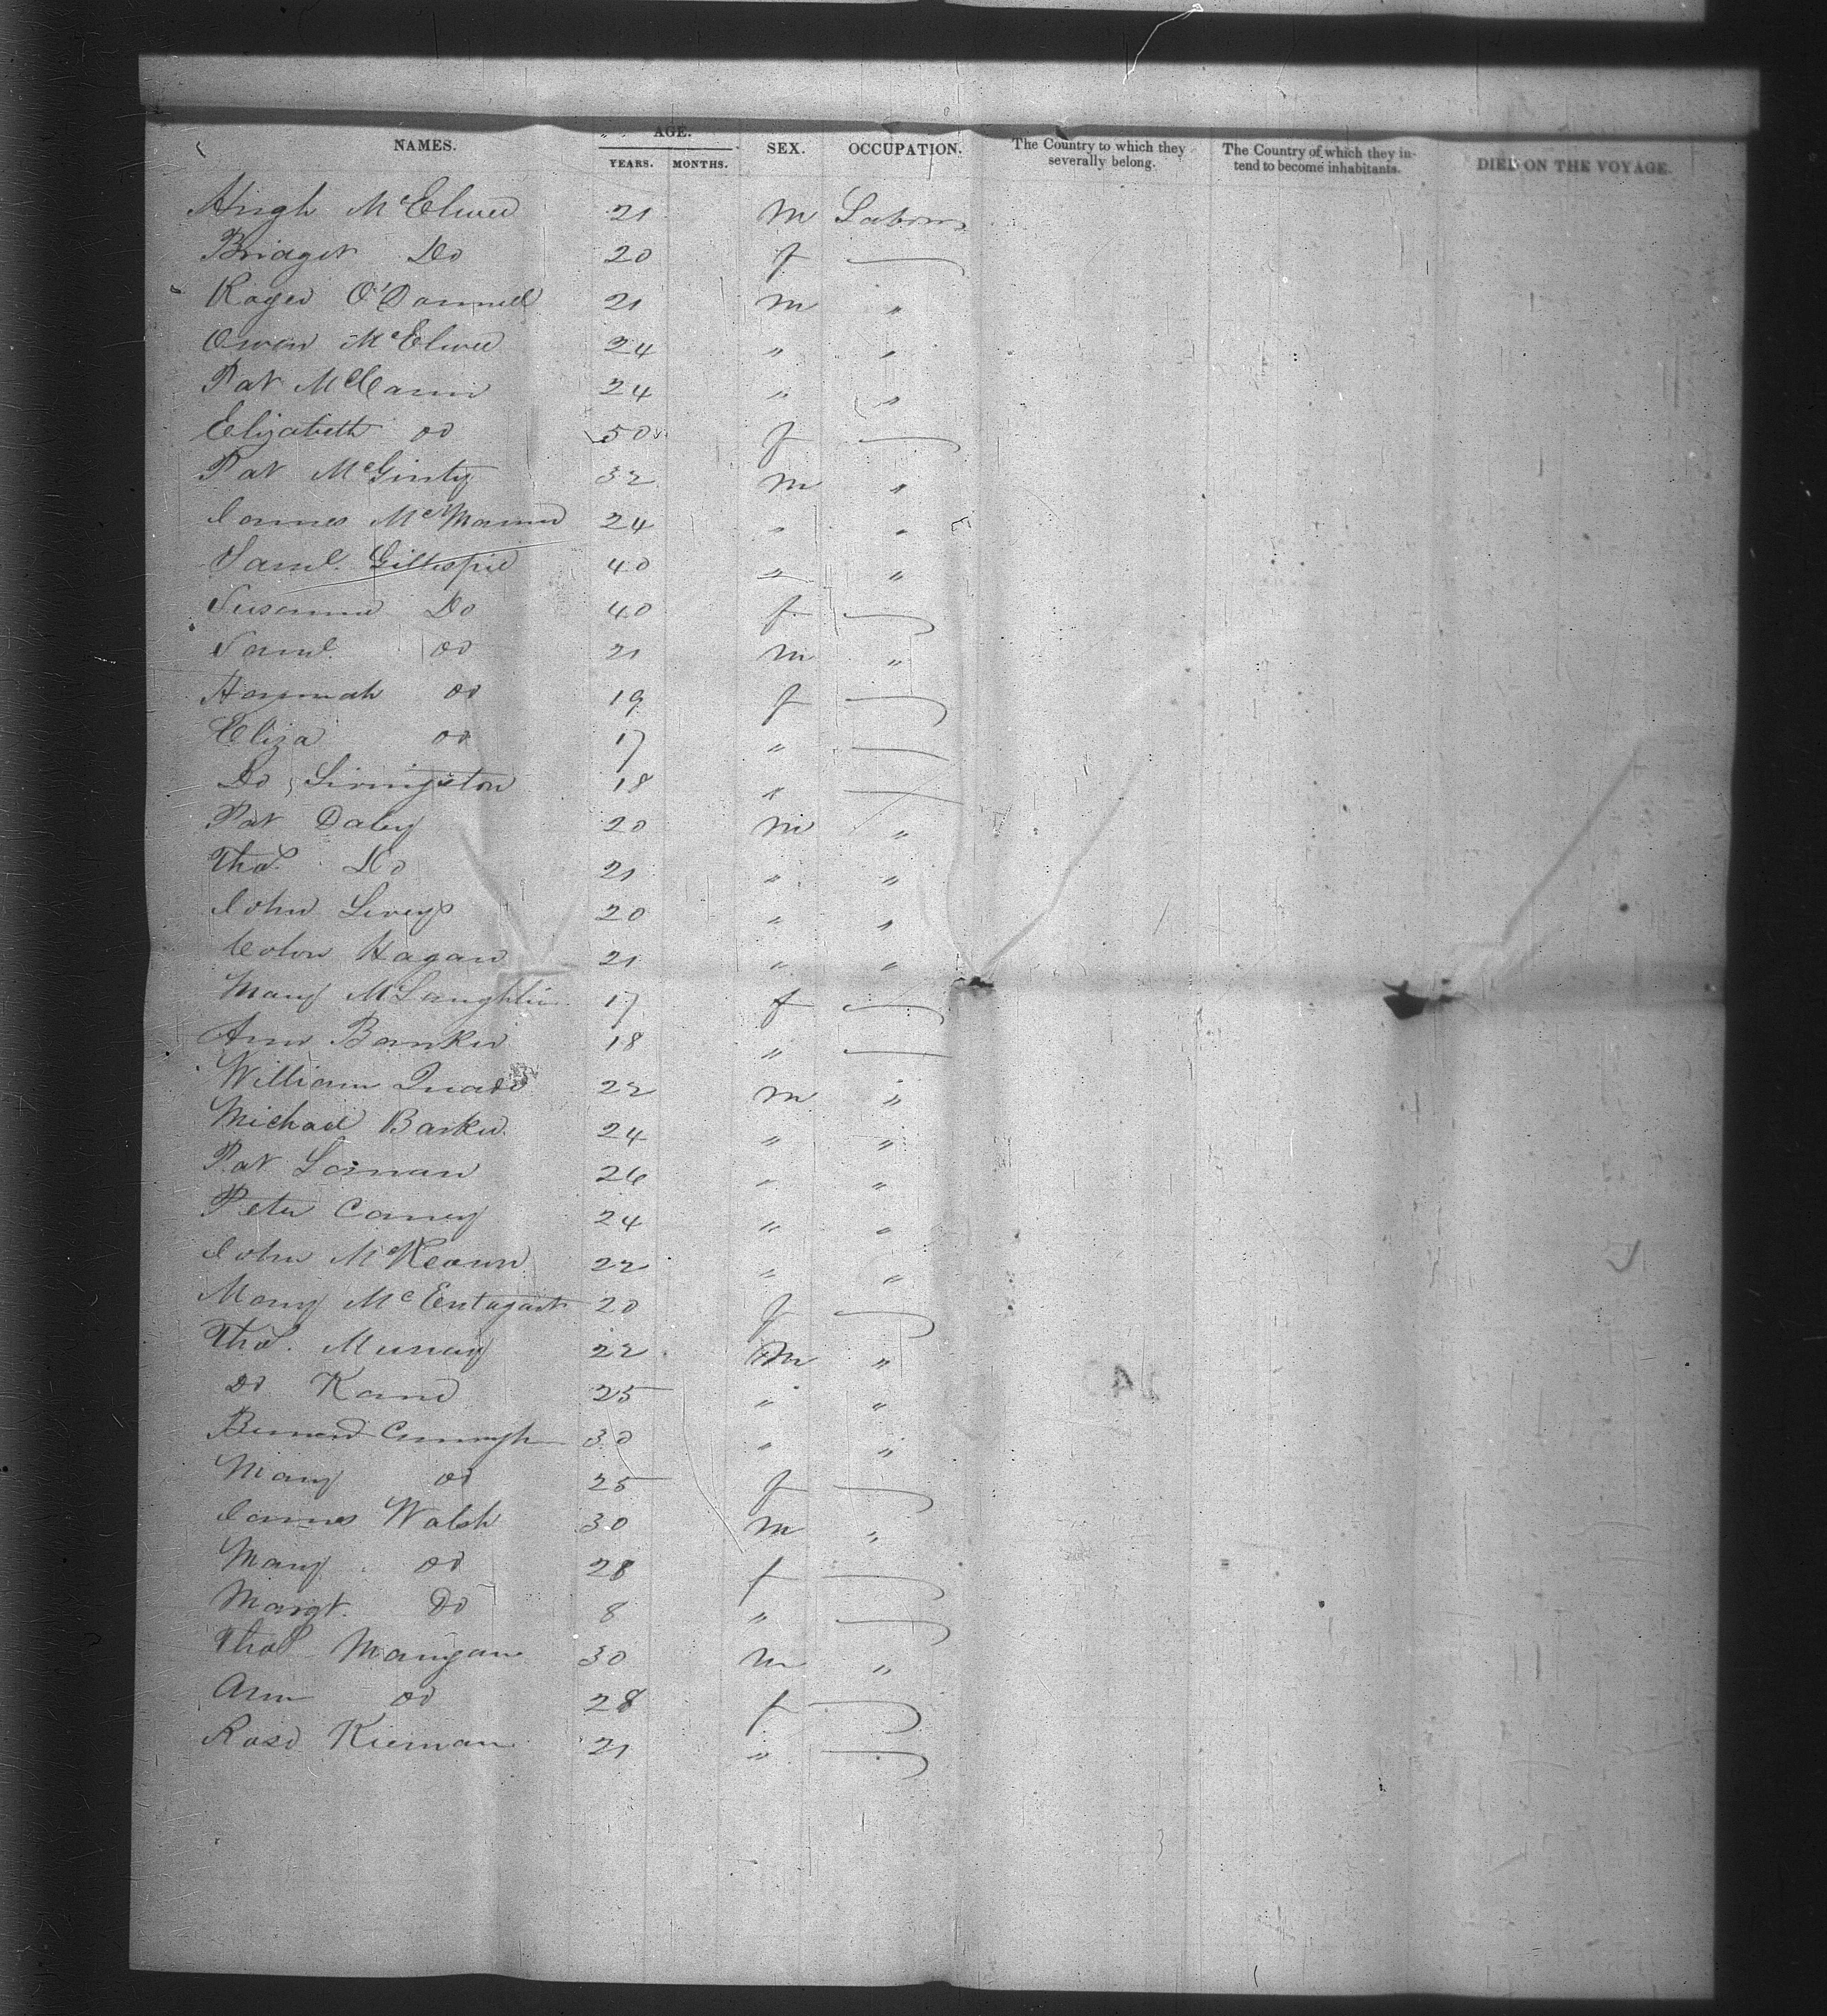 NAMES. AGE. YEARS. MONTHS. SEX. OCCUPATION. The Country to which they severally belong. The Country of which they intend to become inhabitants. DIED ON THE VOYAGE.
Hugh McElwee 21 m Labour
Bridget Do 20 f
Roger O'Donnell 21 m "
Owen McElwee 24 " "
Pat McCann 24 " "
Elizabeth do 50 f
Pat McGinty 32 m "
James McManus 24 " "
Saml. Gillespie 40 " "
Susanna Do 40 f
Saml. do 21 m "
Hannah do 19 f
Eliza do 17 "
Do Livingston 18 "
Pat Daley 20 m "
Thos. Do 21 " "
John 20 " "
Hagan 21 " "
Mary McLaughlin 17 f
Ann 18 "
William 22 m "
Michael Barker 24 " "
Pat 26 " "
Peter Carney 24 " "
John McKeown 22 " "
Mary McEntagart 20 f
Thos. Murray 22 m "
Do Kane 25 " "
Bernard 30 " "
Mary do 25 f
James Walsh 30 m "
Mary do 28 f
Margt. Do 8 "
Thos Mangan 30 m "
Ann do 28 f
Rose Kiernan 21 "